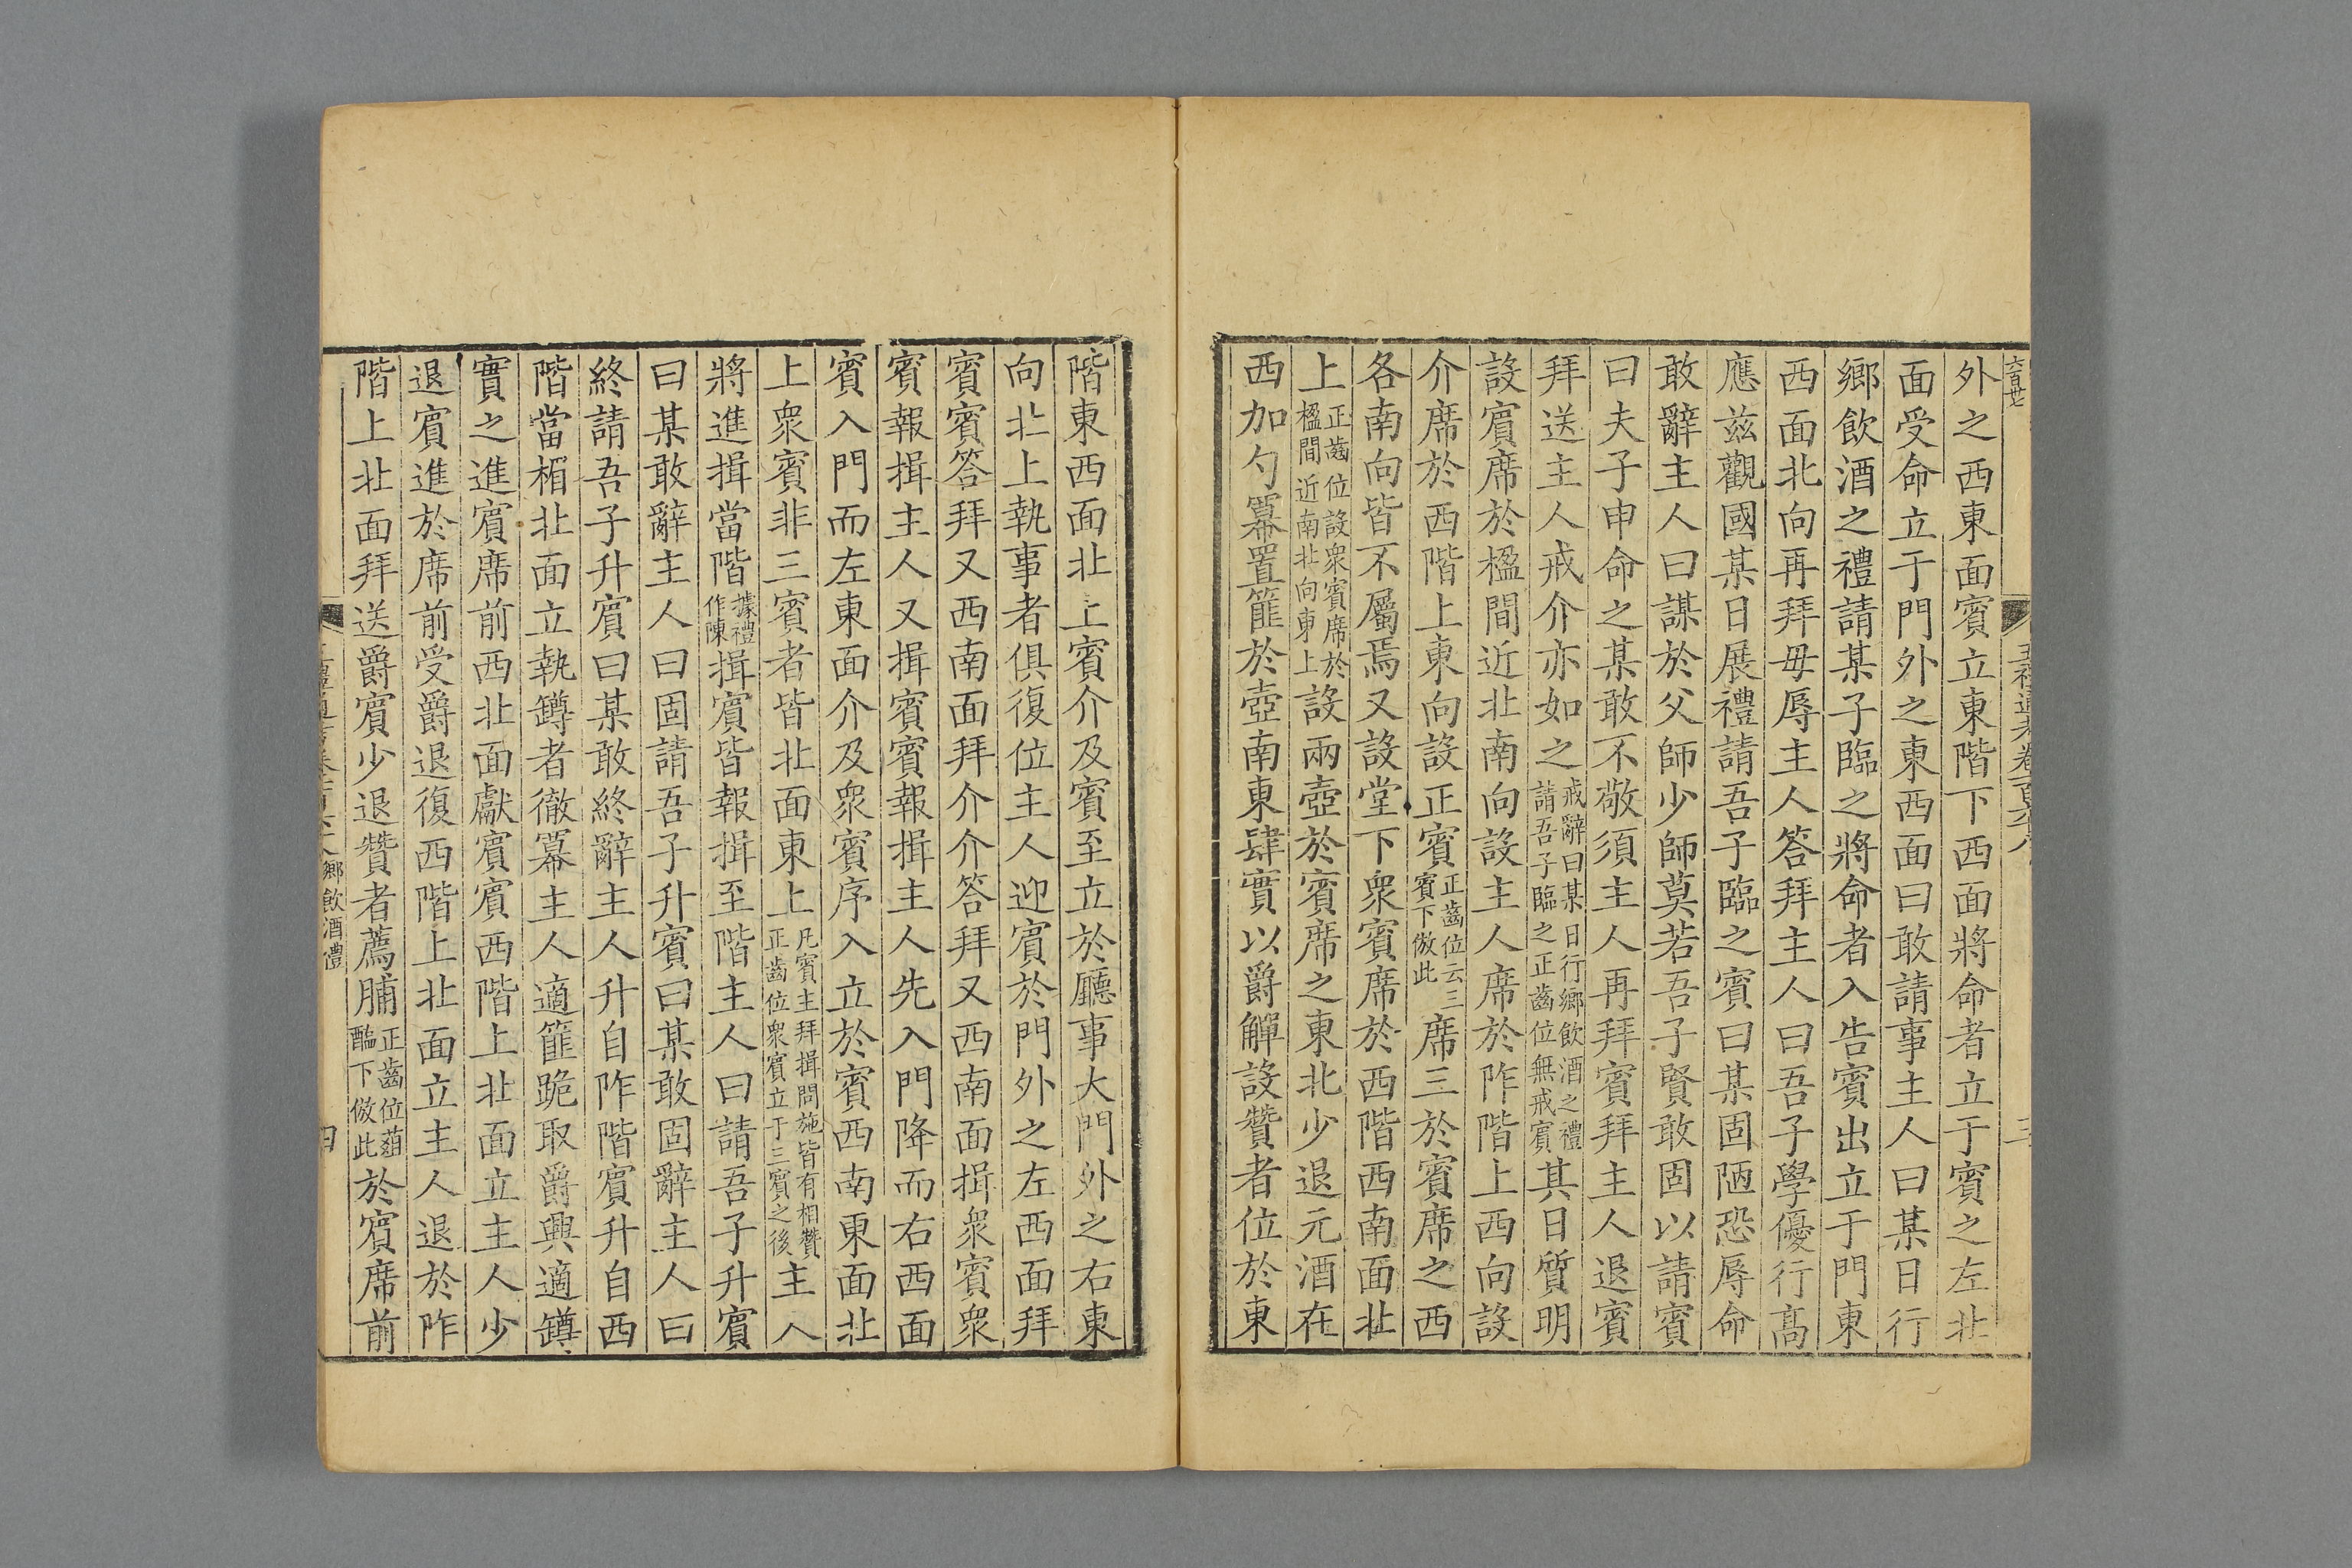 六百廿七
五禮通考卷一百六十八
三
外之西東面賓立東階下西面將命者立于賓之左北
面受命立于門外之東西面曰敢請事主人曰某日行
鄉飲酒之禮請某子臨之將命者入告賓出立于門東
西面北向再拜毋辱主人答拜主人曰吾子學優行高
應茲觀國某日展禮請吾子臨之賓曰某固陋恐辱命
敢辭主人曰謀於父師少師莫若吾子賢敢固以請賓
曰夫子申命之某敢不敬須主人再拜賓拜主人退賓
拜送主人戒介亦如之戒辭曰某日行鄉飲酒之禮請吾子臨之正齒位無戒賓其日質明
設賓席於楹間近北南向設主人席於阼階上西向設
介席於西階上東向設正賓正齒位云三賓下倣此席三於賓席之西
各南向皆不屬焉又設堂下眾賓席於西階西南面北
上正齒位設眾賓席於楹間近南北向東上設兩壺於賓席之東北少退元酒在
西加勺羃置篚於壺南東肆實以爵觶設贊者位於東
階東西面北上賓介及賓至立於廳事大門外之右東
向北上執事者俱復位主人迎賓於門外之左西面拜
賓賓答拜又西南面拜介介答拜又西南面揖眾賓眾
賓報揖主人又揖賓賓報揖主人先入門降而右西面
賓入門而左東面介及眾賓序入立於賓西南東面北
上眾賓非三賓者皆北面東上凡賓主拜揖問施皆有相贊正齒位眾賓立于三賓之後主人
將進揖當階據禮作陳揖賓皆報揖至階主人曰請吾子升賓
曰某敢辭主人曰固請吾子升賓曰某敢固辭主人曰
終請吾子升賓曰某敢終辭主人升自阼階賓升自西
階當楣北面立執罇者徹羃主人適篚跪取爵興適罇
實之進賓席前西北面獻賓賓西階上北面立主人少
退賓進於席前受爵退復西階上北面立主人退於阼
階上北面拜送爵賓少退贊者薦脯正齒位葅醢下倣此於賓席前
鄉飲酒禮
四